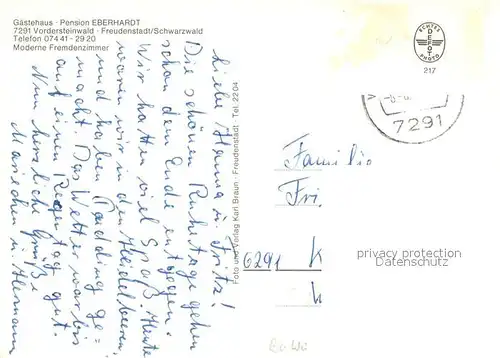 Gästehaus · Pension EBERHARDT
7291 Vordersteinwald · Freudenstadt/Schwarzwald
Telefon 0 74 41 - 29 20
Moderne Fremdenzimmer
Liebe Hanna u. Fritz!
Die schönen Ruhetage gehen
schon dem Ende entgegen.
Wir hatten viel Spaß. Heute
waren wir in den Heidelbeeren
und haben Pudding ge-
macht. Das Wetter war bis
auf einen Regentag gut.
Nun herzliche Grüße
Mariechen u. Hermann
Foto und Verlag Karl Braun · Freudenstadt · Tel. 22 04
ECHTES
DEFOT
PHOTO
217
7291
Familie
Fri
6291 K
privacy protection
Datenschutz